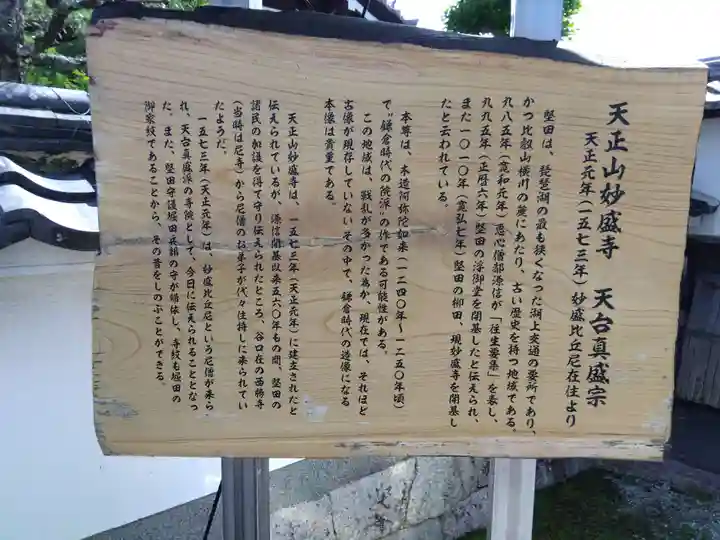 天正山妙盛寺　天台真盛宗
天正元年(一五七三年)妙盛比丘尼在住より
堅田は、琵琶湖の最も狭くなった湖上交通の要所であり、
かつ比叡山横川の麓にあたり、古い歴史を持つ地域である。
九八五年(寛和元年)恵心僧都源信が「往生要集」を表し、
九九五年(正暦六年)堅田の浮御堂を開基したと伝えられ、
また一〇一〇年(寛弘七年)堅田の柳田、現妙盛寺を開基し
たと云われている。
本尊は、木造阿弥陀如来(一二四〇年〜一二五〇年頃)
で"鎌倉時代の院派"の作である可能性がある。
この地域は、戦乱が多かった為か、現在では、それほど
古像が現存していない。その中で、鎌倉時代の造像になる
本像は貴重である。
天正山妙盛寺は、一五七三年(天正元年)に建立されたと
伝えられているが、源信開基以来五六〇年もの間、堅田の
諸民の加護を得て守り伝えられたところ、谷口在の西勝寺
(当時は尼寺)から尼僧のお弟子が代々住持しに来られてい
たようだ。
一五七三年(天正元年)は、妙盛比丘尼という尼僧が来ら
れ、天台真盛派の寺院として、今日に伝えられることとなっ
た。また、堅田守護堀田兵部の守が帰依し、寺紋も堀田の
御家紋であることから、その昔をしのぶことができる。